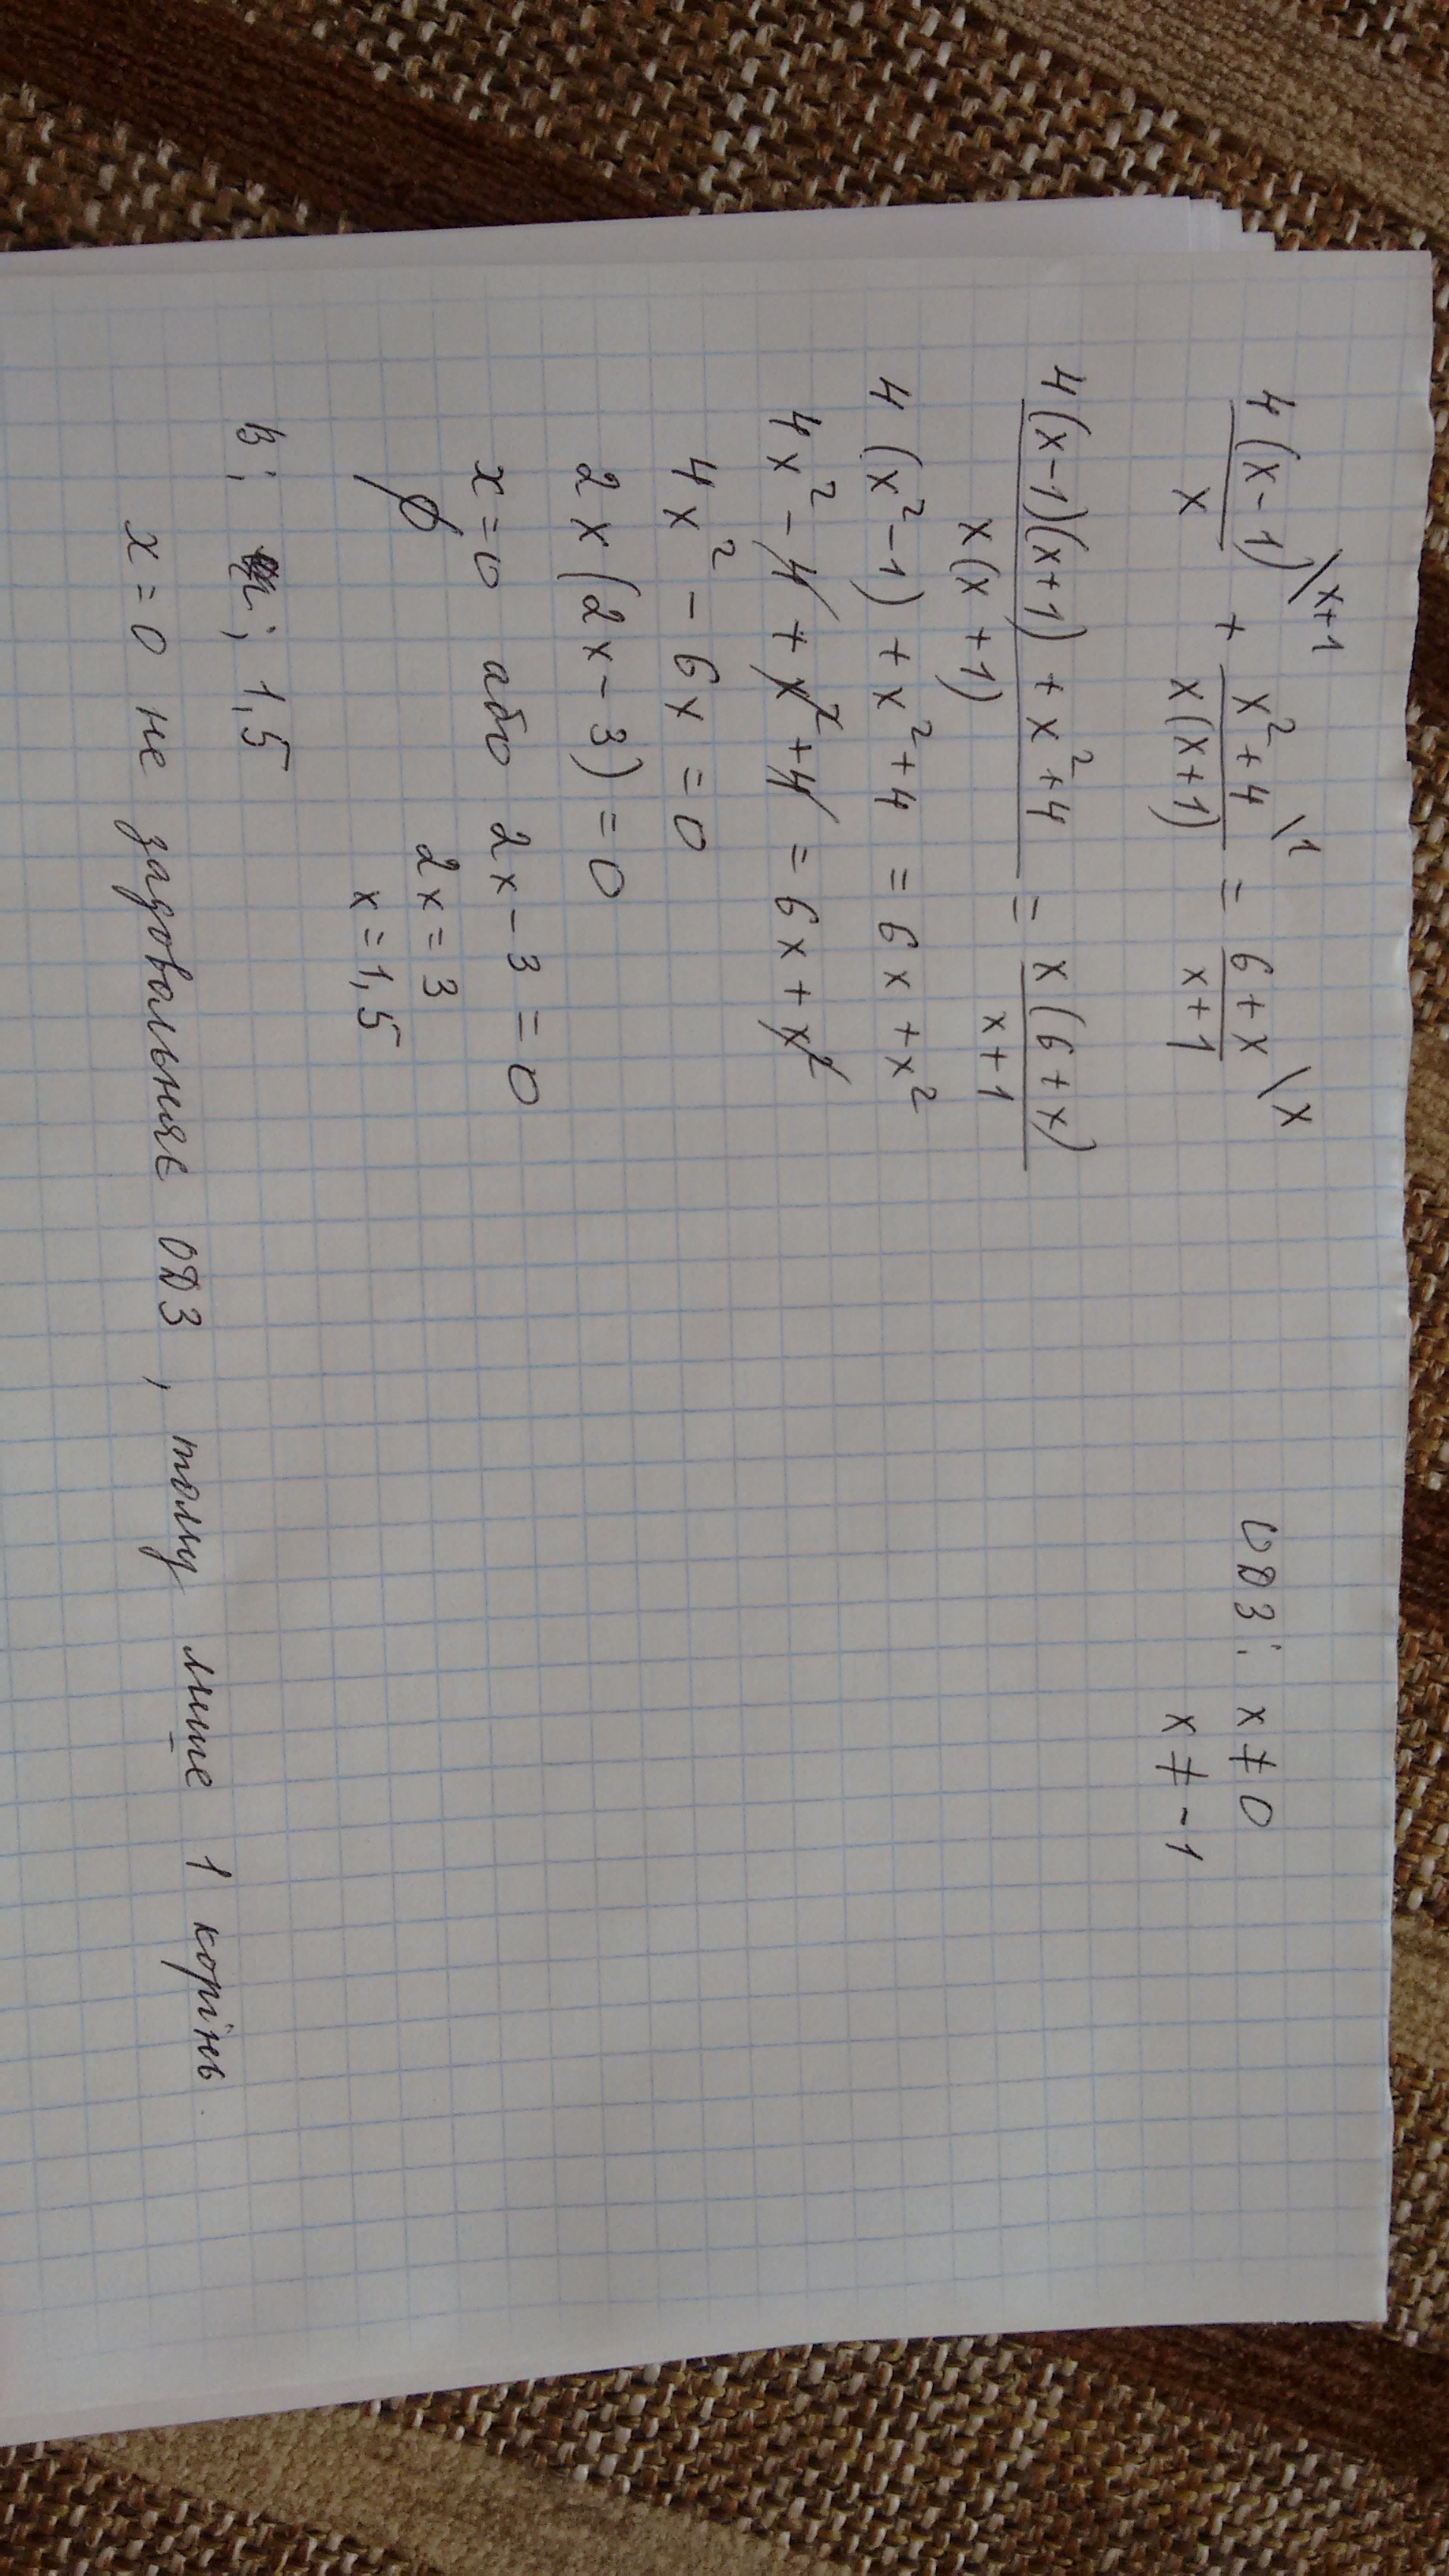 4(x-1)\x+1 / x + x²+4\1 / x(x+1) = 6+x\x / x+1 ОДЗ: x≠0
x≠-1
4(x-1)(x+1) + x²+4 / x(x+1) = x(6+x) / x+1
4(x²-1) + x²+4 = 6x+x²
4x²-4+x²+4 = 6x+x²
4x²-6x=0
2x(2x-3)=0
x=0 або 2x-3=0
ø 2x=3
x=1,5
В: ; 1,5
x=0 не задовольняє ОДЗ, тому лише 1 корінь.